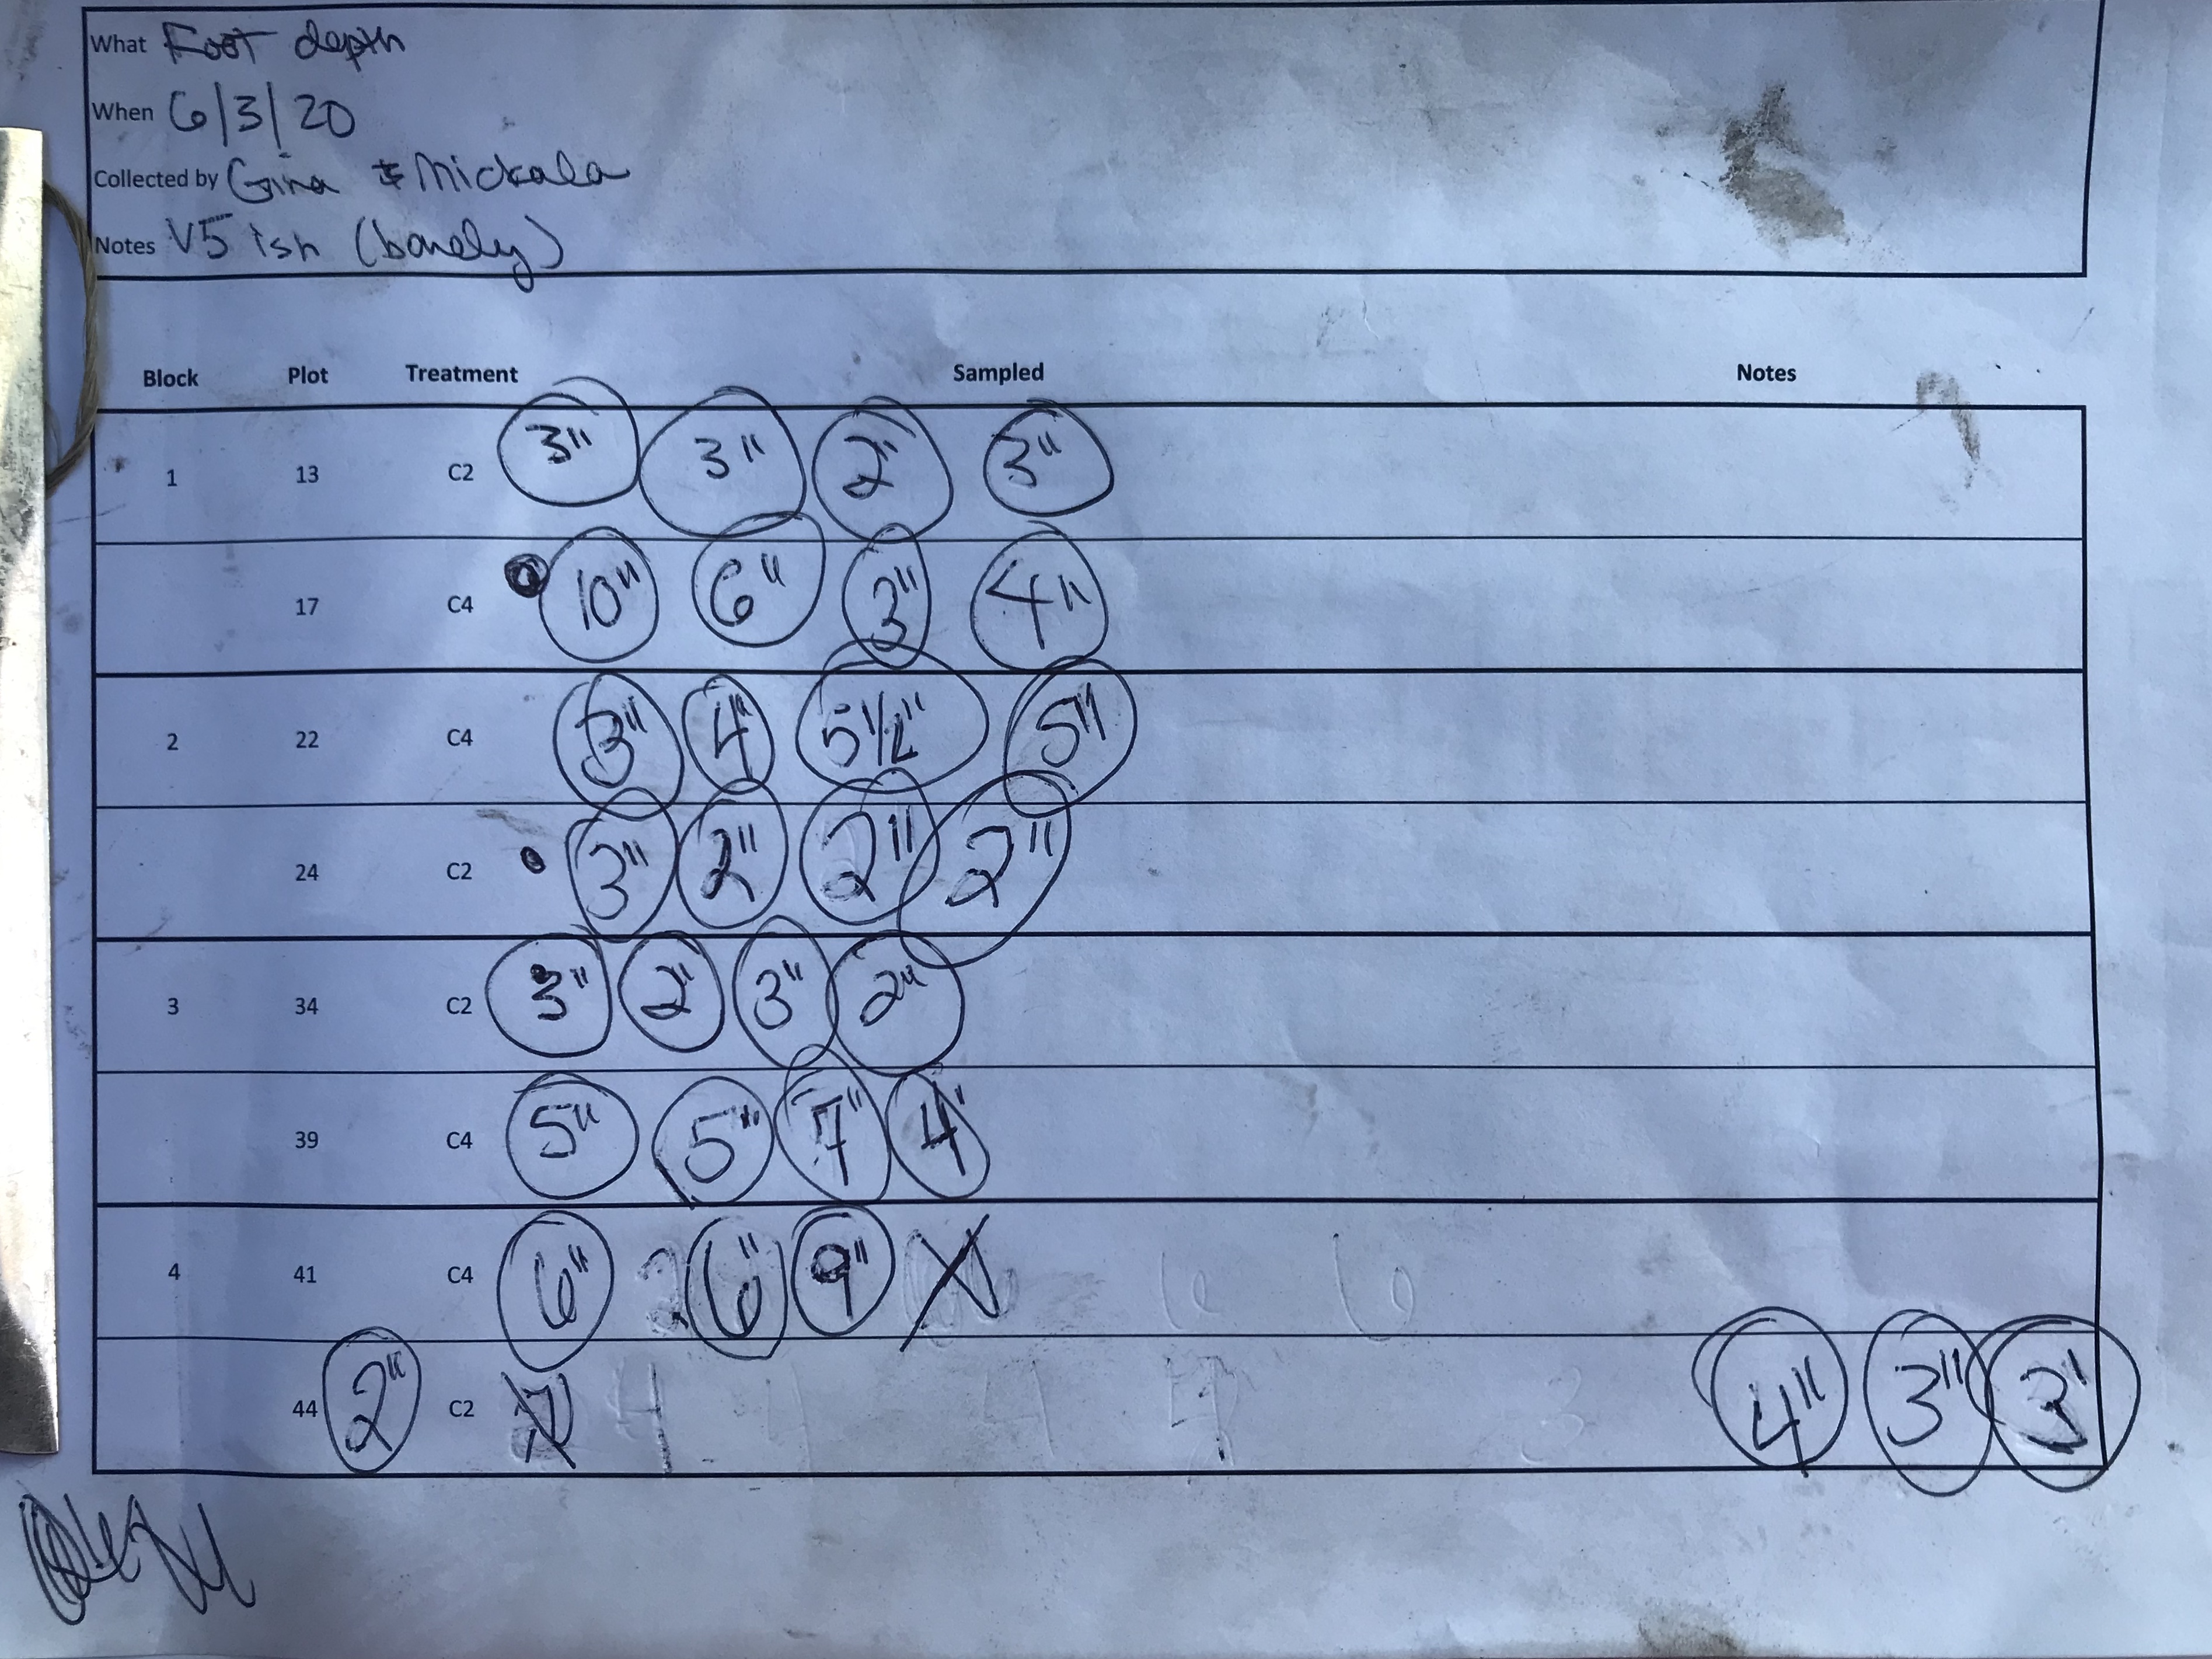 What Root depth
When 6/3/20
Collected by Gina & Mickala
Notes V5 ish (barely)
Block Plot Treatment Sampled Notes
1 13 C2 3" 3" 2" 3"
17 C4 10" 6" 3" 4"
2 22 C4 3" 4" 5 1/2" 5"
24 C2 3" 2" 2" 2"
3 34 C2 3" 2" 3" 2"
39 C4 5" 5" 7" 4"
4 41 C4 6" 6" 9"
44 2" C2 4" 3" 3"